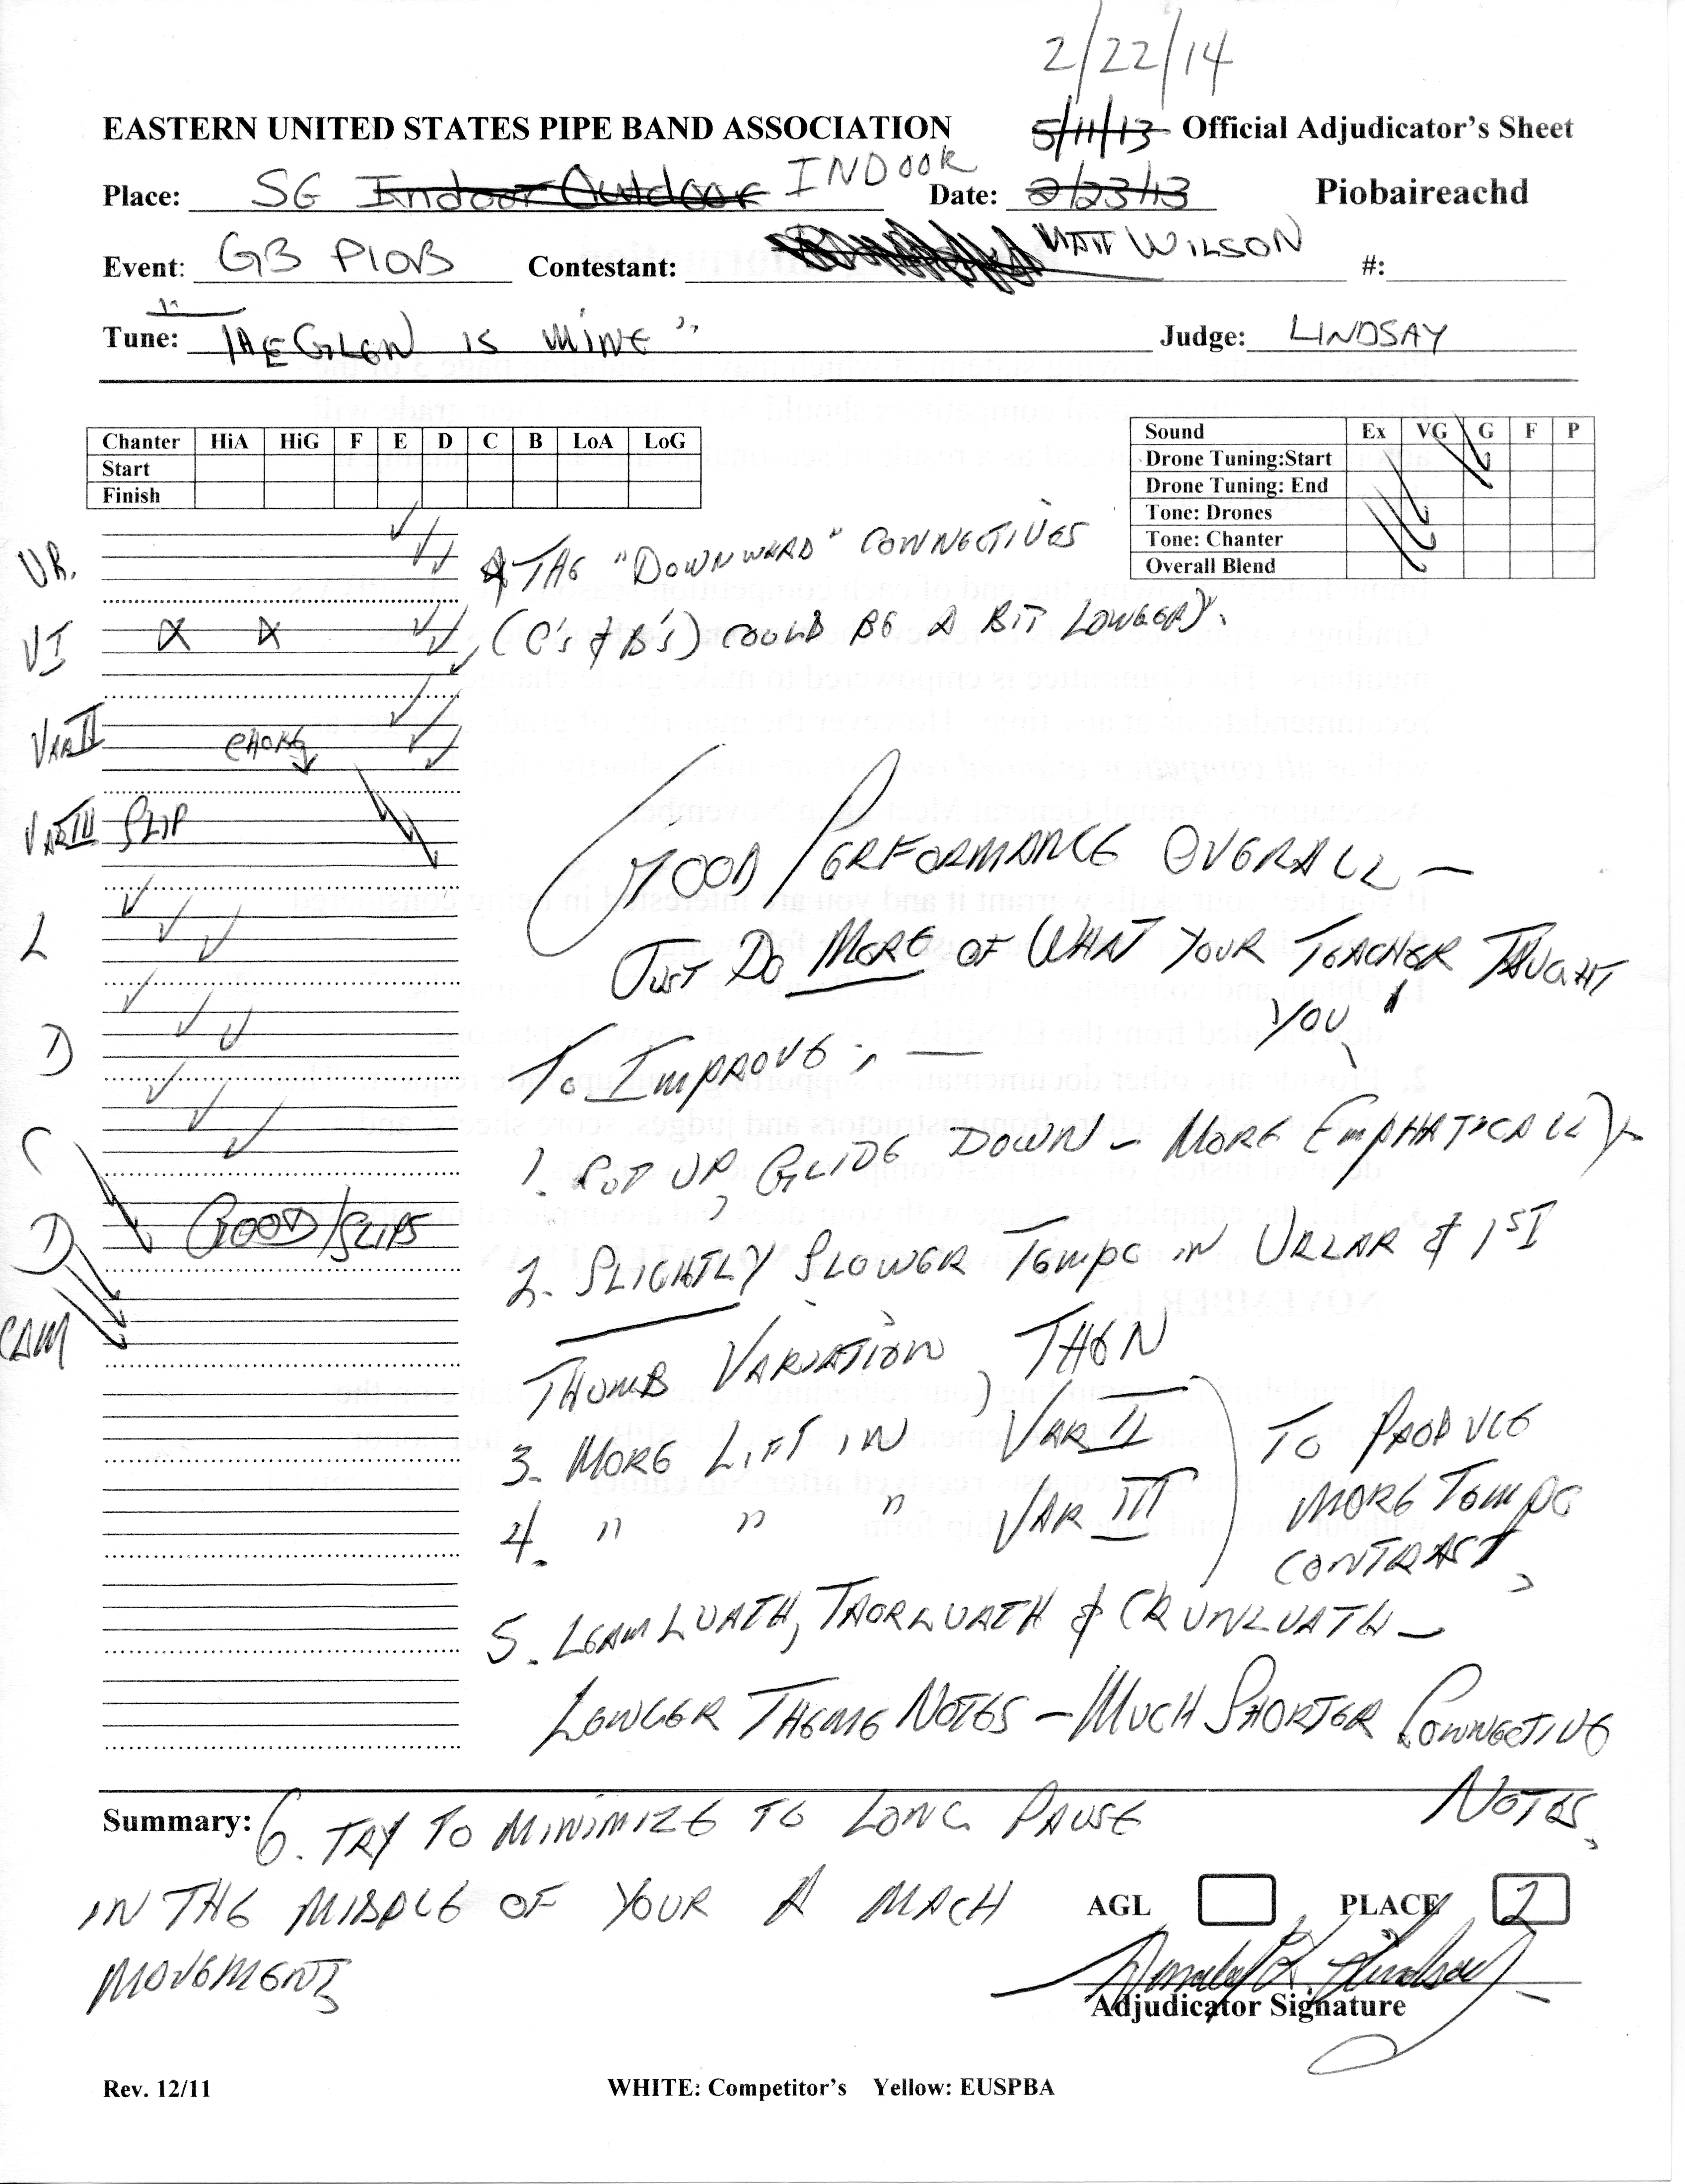 2/22/14
EASTERN UNITED STATES PIPE BAND ASSOCIATION 5/11/13 Official Adjudicator's Sheet
Place: SG Indoor Outdoor INDOOR Date: 2/23/13 Piobaireachd
Event: G3 PIOB Contestant: MATT WILSON #:
Tune: "THE GLEN IS MINE" Judge: LINDSAY
Chanter HiA HiG F E D C B LoA LoG
Start
Finish
Sound Ex VG G F P
Drone Tuning:Start
Drone Tuning: End
Tone: Drones
Tone: Chanter
Overall Blend
UR.
THE "DOWNWARD" CONNECTIVES
VI
(C's & B's) COULD BE A BIT LONGER).
VAR II
VAR III SLIP
GOOD PERFORMANCE OVERALL —
L
JUST DO MORE OF WHAT YOUR TEACHER TAUGHT
YOU!
D
TO IMPROVE: —
C
1. CUT UP, GLIDE DOWN - MORE EMPHATICALLY
D
GOOD/SLIPS
2. SLIGHTLY SLOWER TEMPO IN URLAR & 1ST
CAM
THUMB VARIATION, THEN
3. MORE LIFT IN VAR II
4. " " " VAR III
TO PRODUCE
MORE TEMPO
CONTRAST,
5. LEAMLUATH, TAORLUATH & CRUNLUATH —
LONGER THEME NOTES — MUCH SHORTER CONNECTIVE
NOTES.
Summary: 6. TRY TO MINIMIZE TO LONG PAUSE
IN THE MIDDLE OF YOUR A MACH
MOVEMENTS
AGL PLACE 2
Adjudicator Signature
Rev. 12/11 WHITE: Competitor's Yellow: EUSPBA